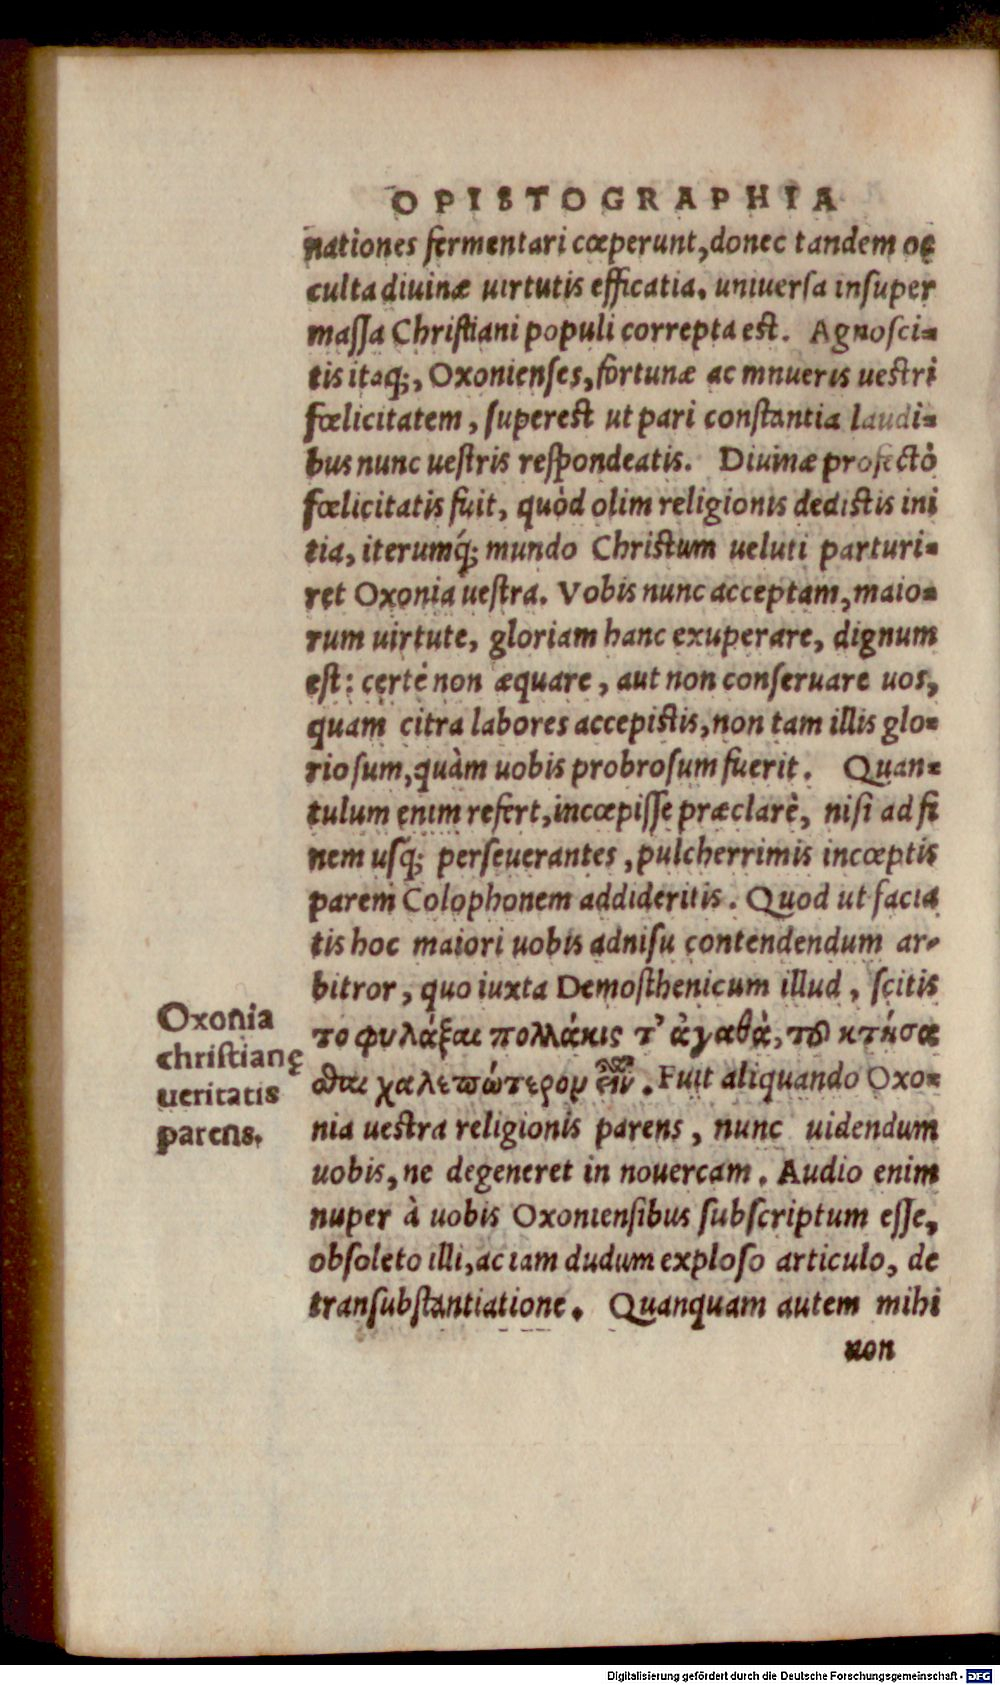 OPISTOGRAPHIA
nationes fermentari cœperunt, donec tandem oc
culta diuinæ uirtutis efficatia, uniuersa insuper
massa Christiani populi correpta est. Agnosci-
tis itaq;, Oxonienses, fortunæ ac mnueris uestri
fœlicitatem, superest ut pari constantia laudi-
bus nunc uestris respondeatis. Diuinæ profectò
fœlicitatis fuit, quòd olim religionis dedistis ini
tia, iterumq́; mundo Christum ueluti parturi-
ret Oxonia uestra. Vobis nunc acceptam, maio-
rum uirtute, gloriam hanc exuperare, dignum
est: certè non æquare, aut non conseruare uos,
quam citra labores accepistis, non tam illis glo-
riosum, quàm uobis probrosum fuerit. Quan-
tulum enim refert, incœpisse præclarè, nisi ad fi
nem usq; perseuerantes, pulcherrimis incœptis
parem Colophonem addideritis. Quod ut facia
tis hoc maiori uobis adnisu contendendum ar-
bitror, quo iuxta Demosthenicum illud, scitis
το φυλάξαι πολλάκις τ' ἀγαθὰ, τοῦ κτήσα
σθαι χαλεπώτερον εἶν. Fuit aliquando Oxo-
nia uestra religionis parens, nunc uidendum
uobis, ne degeneret in nouercam. Audio enim
nuper à uobis Oxoniensibus subscriptum esse,
obsoleto illi, ac iam dudum exploso articulo, de
transubstantiatione. Quanquam autem mihi
non
Oxonia
christianę
ueritatis
parens.
Digitalisierung gefördert durch die Deutsche Forschungsgemeinschaft - DFG